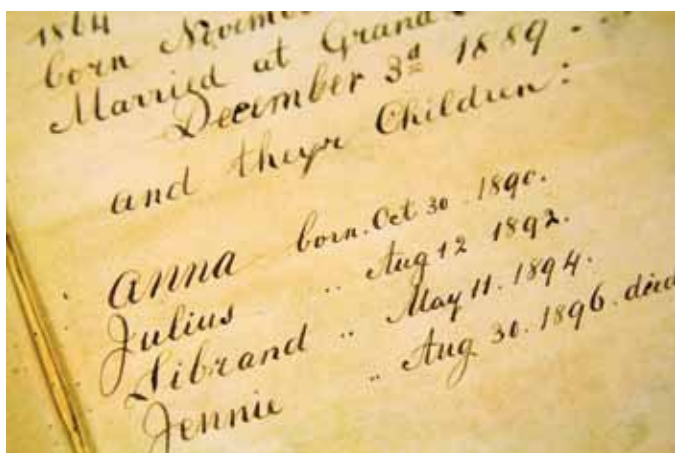 1864
born November
Married at Grand
December 3d 1889.
and theyr Children:
Anna born. Oct 30. 1890.
Julius " Aug 12 1892.
Sibrand " May 11. 1894.
Jennie " Aug. 30. 1896. died